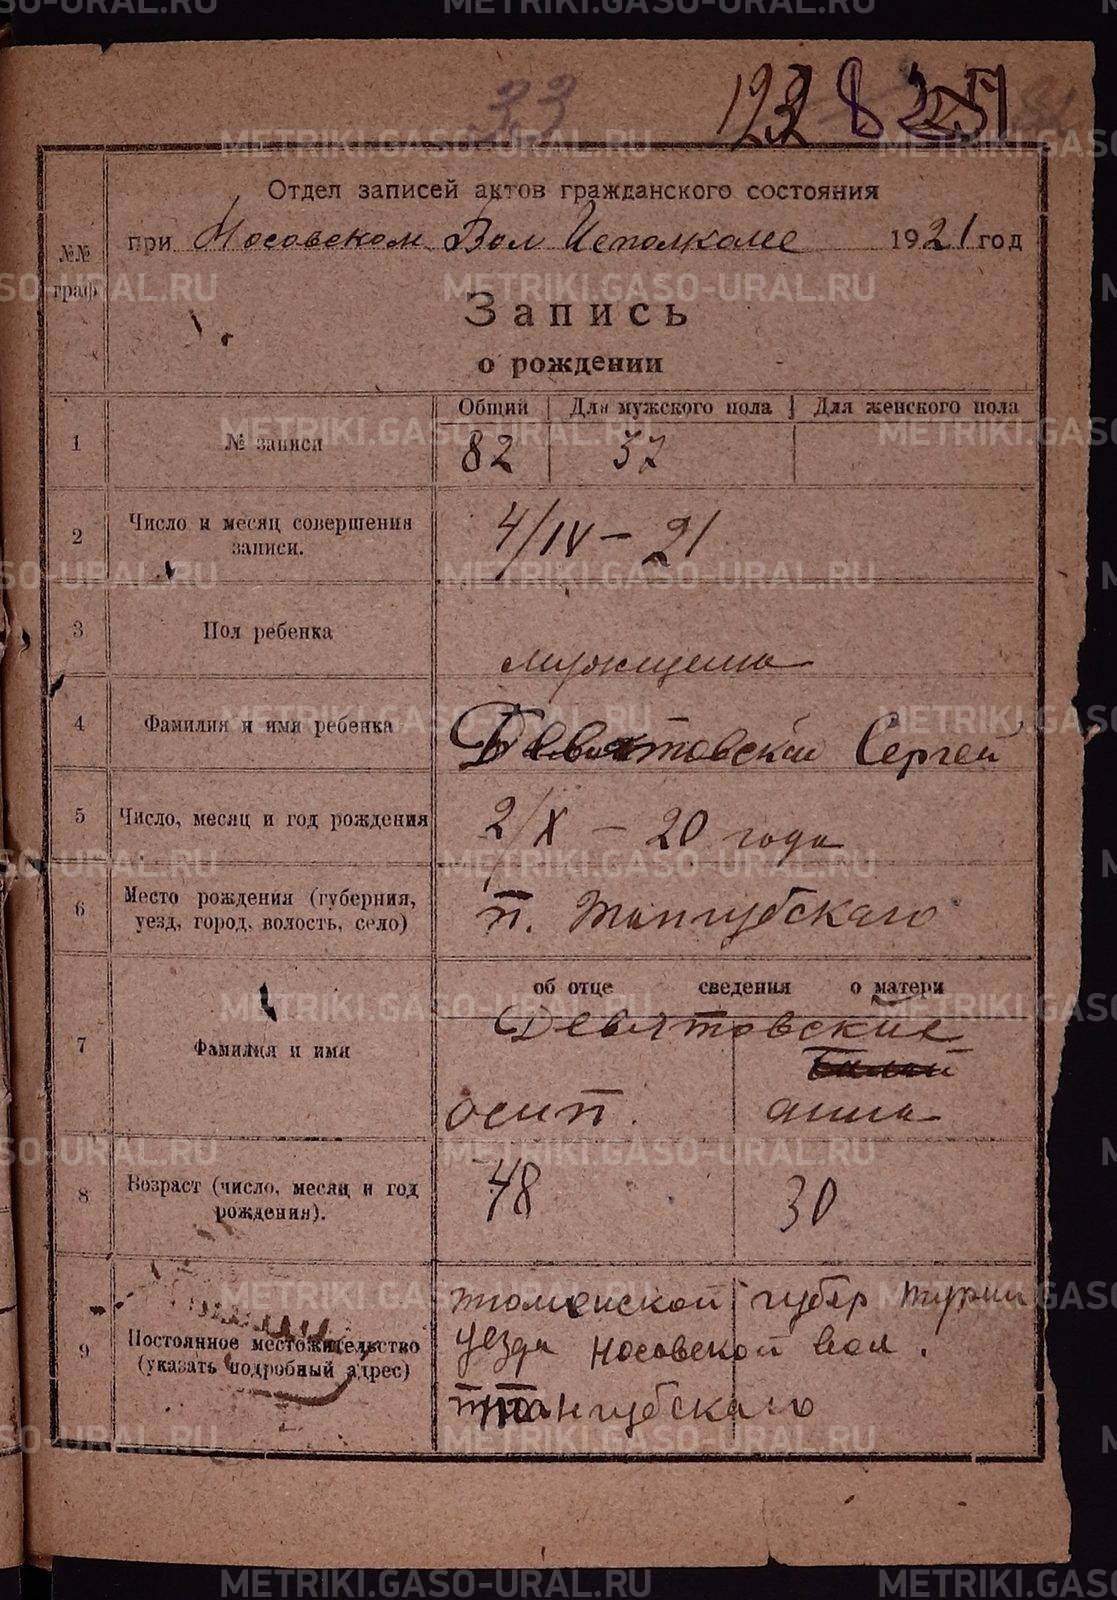 33
123 8 251
Отдел записей актов гражданского состояния
при Носовском Вол Исполкоме 1921 год
№№ граф
Запись
о рождении
Общий Для мужского пола Для женского пола
1 № записи 82 37
2 Число и месяц совершения записи. 4/IV – 21
3 Пол ребенка мужщина
4 Фамилия и имя ребенка Девятовский Сергей
5 Число, месяц и год рождения 2/X – 20 года
6 Место рождения (губерния, уезд, город, волость, село) п. Тангубскаго
об отце сведения о матери
Девятовские
7 Фамилия и имя осип. анна
8 Возраст (число, месяц и год рождения). 48 30
9 Постоянное местожительство (указать подробный адрес) тюменской губер турин
уезда носовской вол.
п Тангубскаго
METRIKI.GASO-URAL.RU